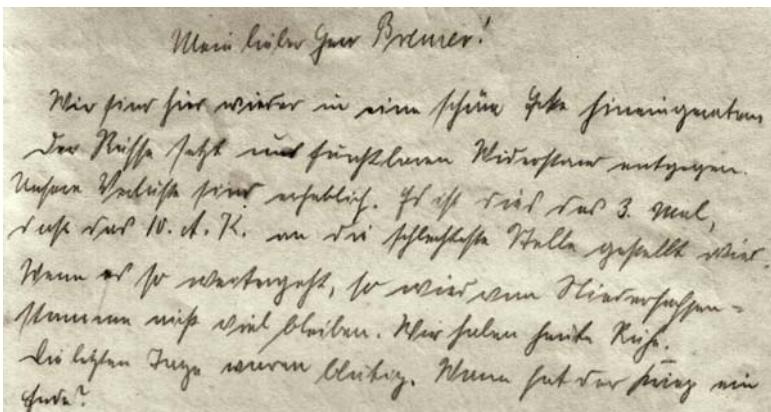 Mein lieber Herr Bremer!
Wir sind hier wieder in eine schöne Ecke hineingeraten
Der Russe setzt uns furchtbaren Widerstand entgegen.
Unsere Verluste sind erheblich. Es ist dies das 3. Mal,
daß das 10. A. K. an die schlechteste Stelle gestellt wird.
Wenn es so weitergeht, so wird vom Niedersachsen-
stamme nicht viel bleiben. Wir haben heute Ruhe.
Die letzten Tage waren blutig. Wann hat der Krieg ein
Ende?